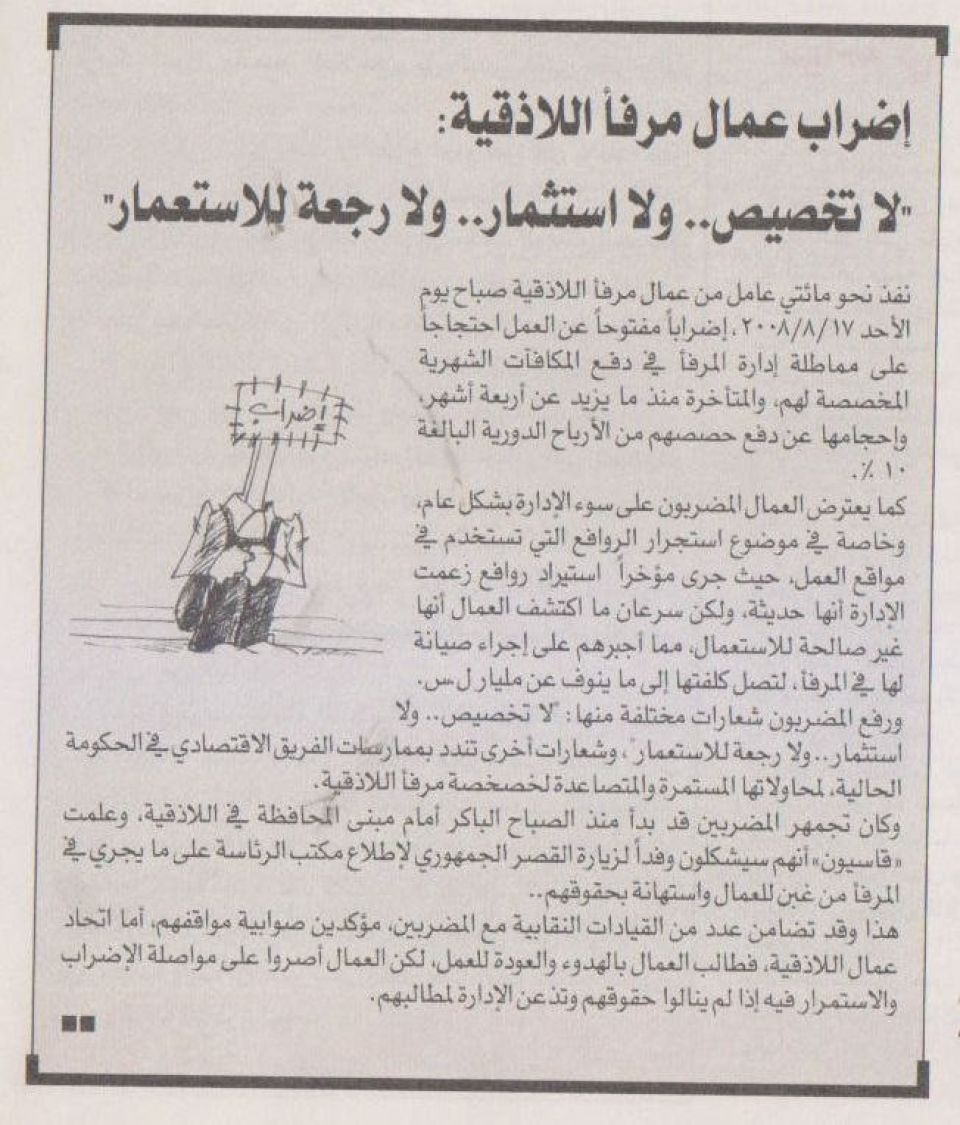 إضراب عمال مرفأ اللاذقية:
"لا تخصيص.. ولا استثمار.. ولا رجعة للاستعمار"
نفذ نحو مائتي عامل من عمال مرفأ اللاذقية صباح يوم
الأحد ٢٠٠٨/٨/١٧، إضراباً مفتوحاً عن العمل احتجاجاً
على مماطلة إدارة المرفأ في دفع المكافآت الشهرية
المخصصة لهم، والمتأخرة منذ ما يزيد عن أربعة أشهر،
وإحجامها عن دفع حصصهم من الأرباح الدورية البالغة
١٠ ٪.
إضراب
كما يعترض العمال المضربون على سوء الإدارة بشكل عام،
وخاصة في موضوع استجرار الروافع التي تستخدم في
مواقع العمل، حيث جرى مؤخراً استيراد روافع زعمت
الإدارة أنها حديثة، ولكن سرعان ما اكتشف العمال أنها
غير صالحة للاستعمال، مما أجبرهم على إجراء صيانة
لها في المرفأ، لتصل كلفتها إلى ما ينوف عن مليار ل.س.
ورفع المضربون شعارات مختلفة منها: "لا تخصيص.. ولا
استثمار.. ولا رجعة للاستعمار"، وشعارات أخرى تندد بممارسات الفريق الاقتصادي في الحكومة
الحالية، لمحاولاتها المستمرة والمتصاعدة لخصخصة مرفأ اللاذقية.
وكان تجمهر المضربين قد بدأ منذ الصباح الباكر أمام مبنى المحافظة في اللاذقية، وعلمت
«قاسيون» أنهم سيشكلون وفداً لزيارة القصر الجمهوري لإطلاع مكتب الرئاسة على ما يجري في
المرفأ من غبن للعمال واستهانة بحقوقهم..
هذا وقد تضامن عدد من القيادات النقابية مع المضربين، مؤكدين صوابية مواقفهم، أما اتحاد
عمال اللاذقية، فطالب العمال بالهدوء والعودة للعمل، لكن العمال أصروا على مواصلة الإضراب
والاستمرار فيه إذا لم ينالوا حقوقهم وتذعن الإدارة لمطالبهم.